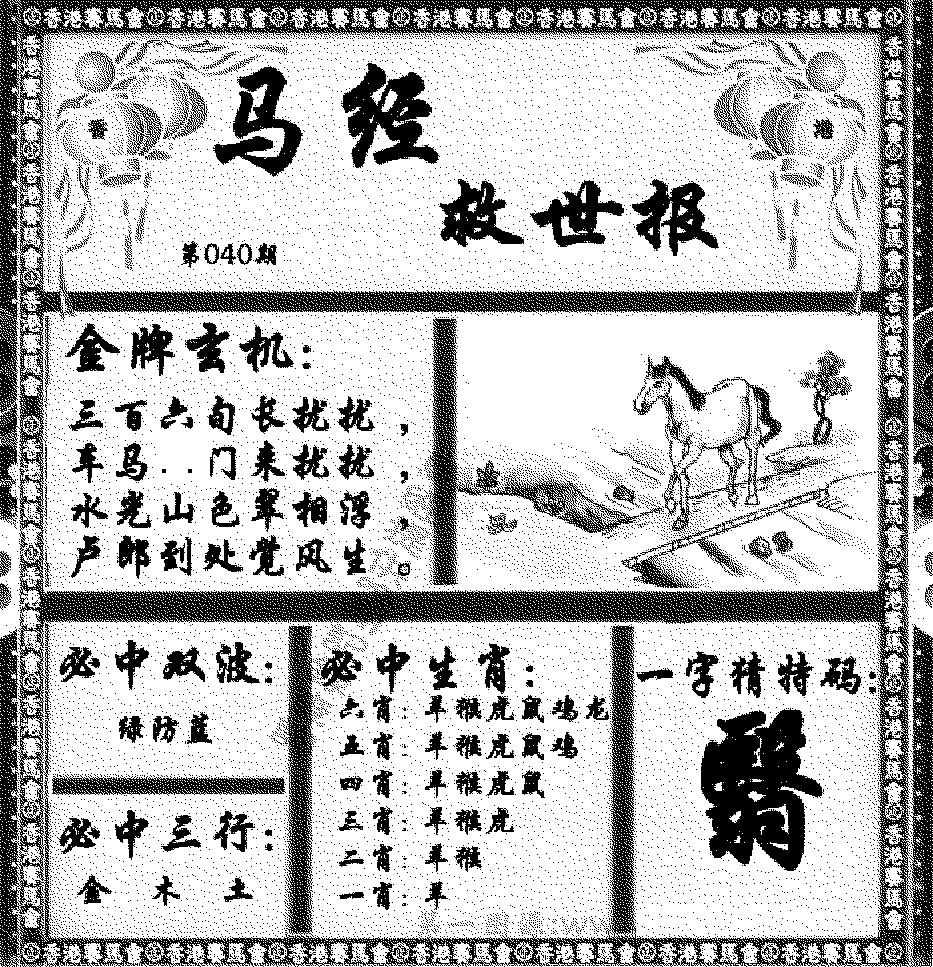 香港賽馬會 香港賽馬會 香港賽馬會 香港賽馬會 香港賽馬會 香港賽馬會 香港賽馬會
香
港
马经
救世报
第040期
金牌玄机:
三百六旬长扰扰，
车马..门来扰扰，
水光山色翠相浮，
卢郎到处觉风生。
必中双波:
绿防蓝
必中三行:
金 木 土
必中生肖:
六肖: 羊猴虎鼠鸡龙
五肖: 羊猴虎鼠鸡
四肖: 羊猴虎鼠
三肖: 羊猴虎
二肖: 羊猴
一肖: 羊
一字猜特码:
翳
香港賽馬會 香港賽馬會 香港賽馬會 香港賽馬會 香港賽馬會 香港賽馬會 香港賽馬會